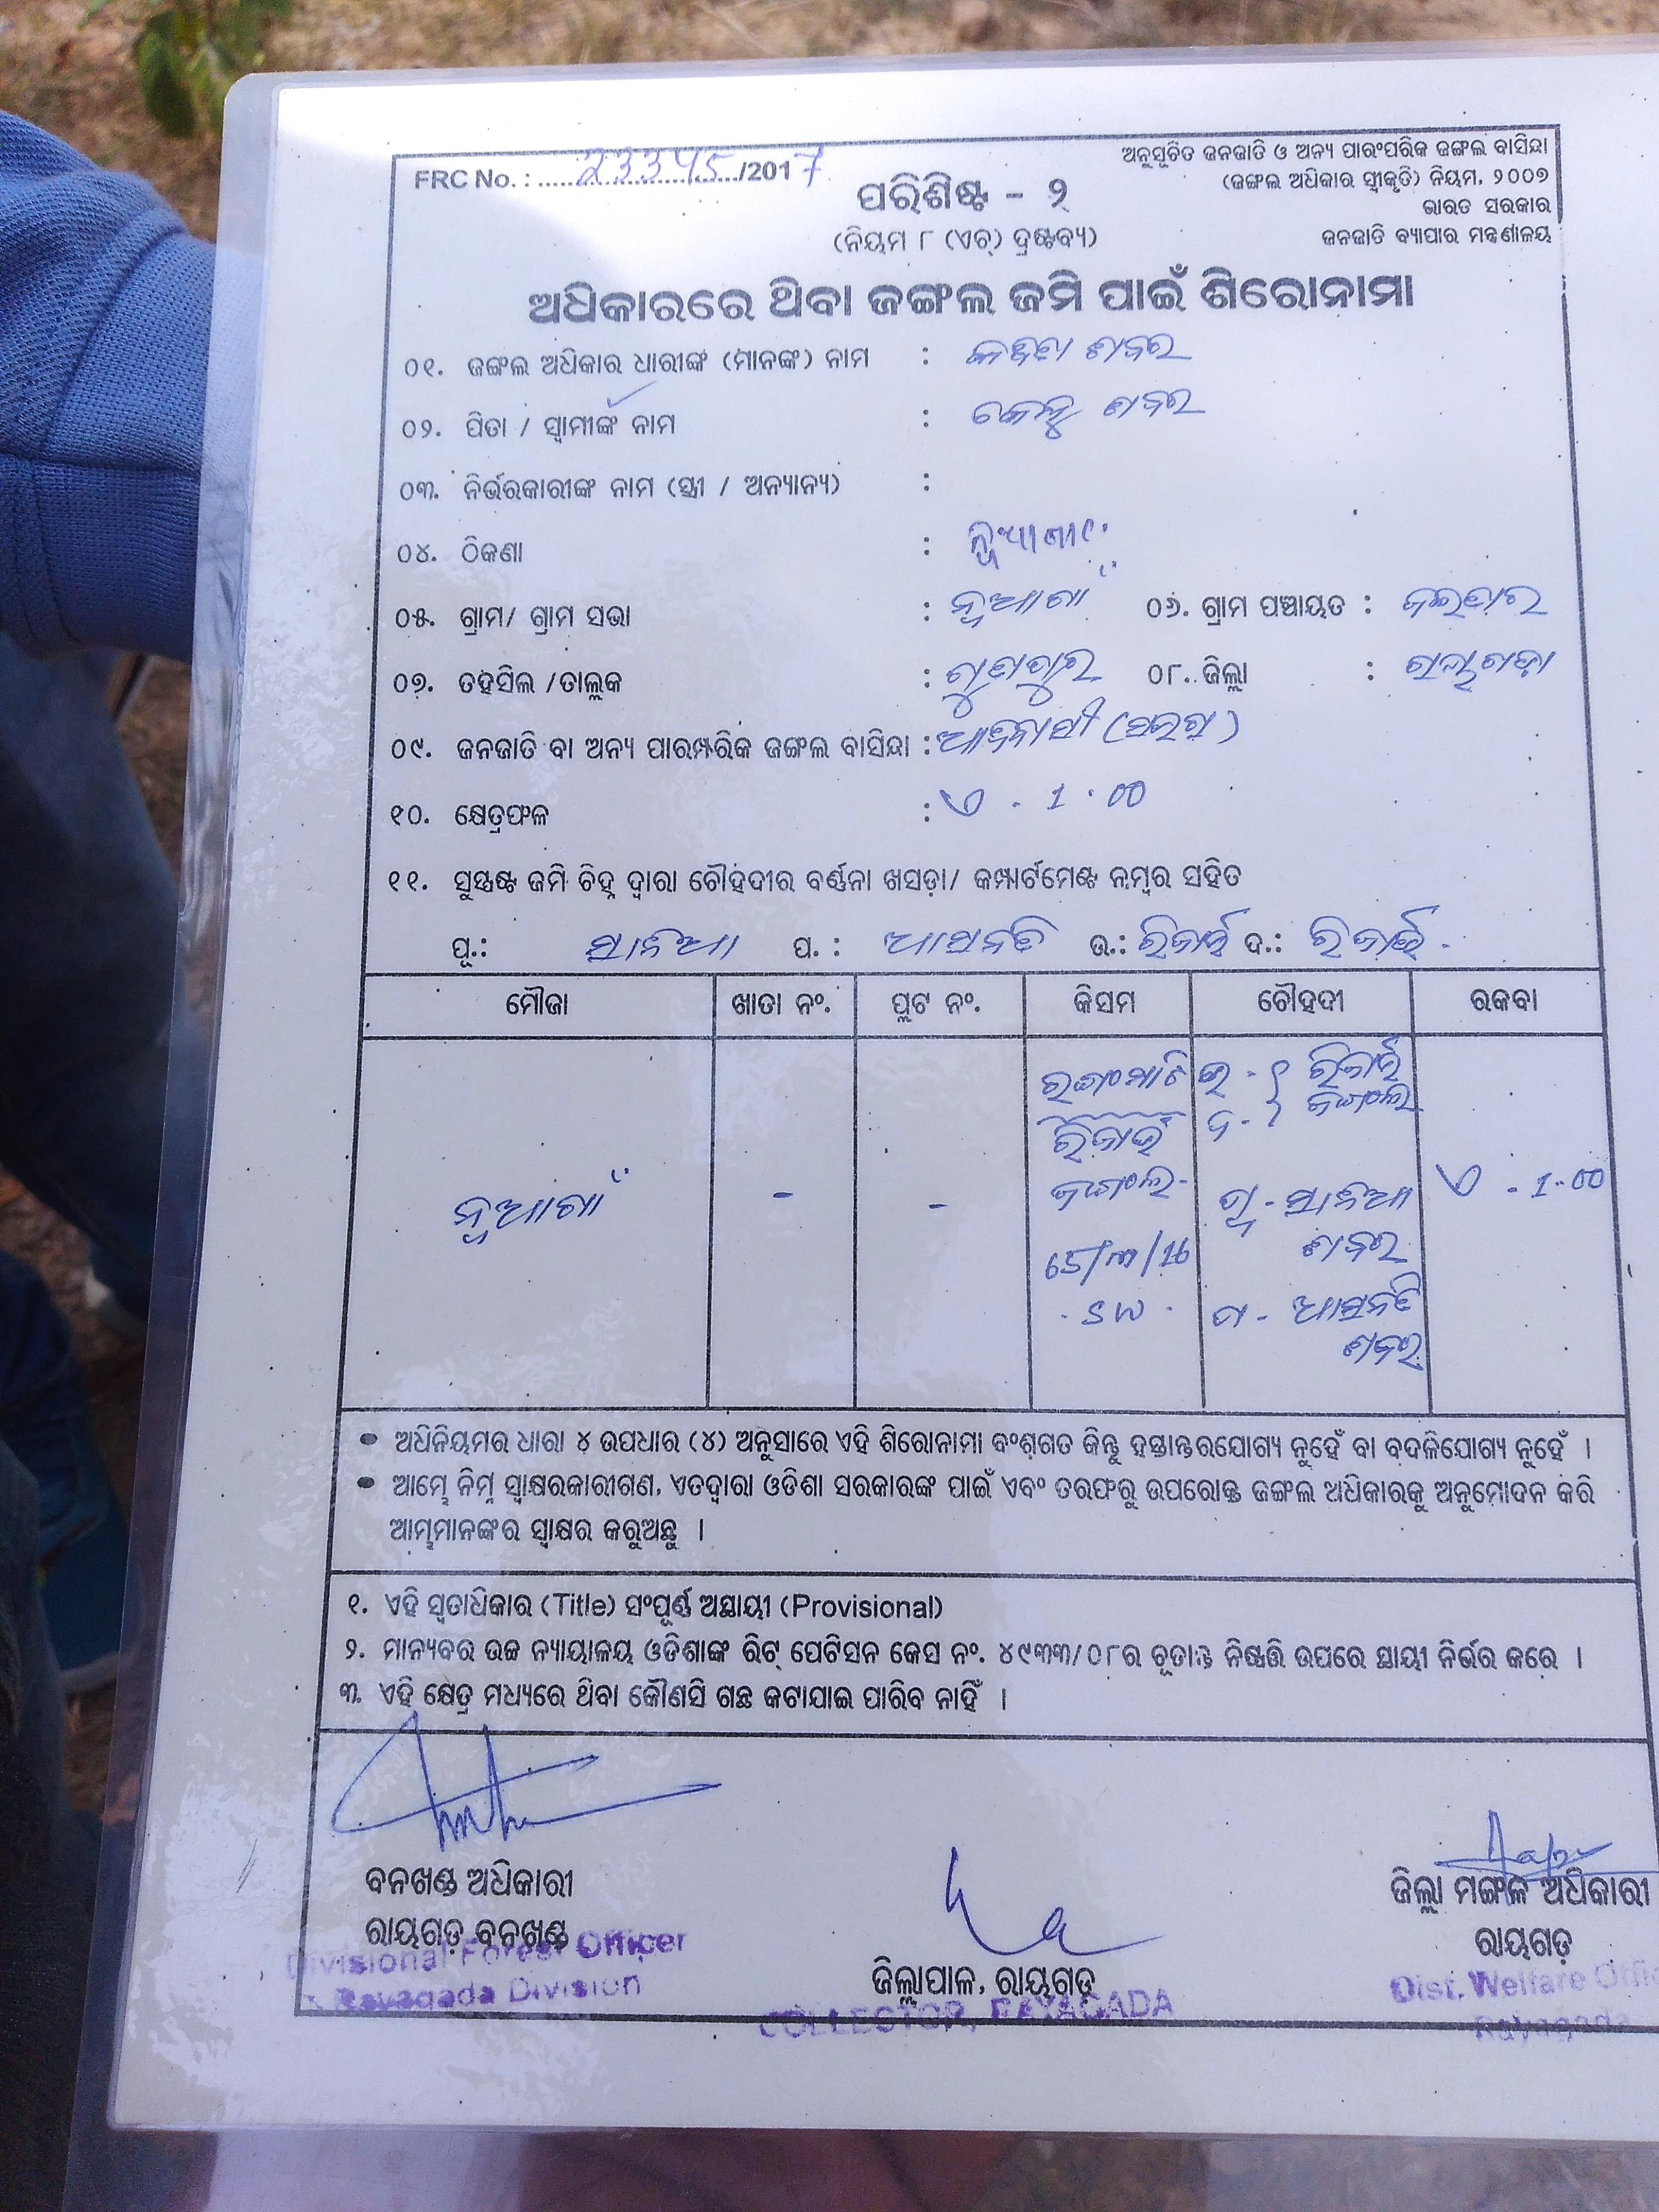 FRC No. : 23345/2017
ଅନୁସୂଚିତ ଜନଜାତି ଓ ଅନ୍ୟ ପାରଂପରିକ ଜଙ୍ଗଲ ବାସିନ୍ଦା
(ଜଙ୍ଗଲ ଅଧିକାର ସ୍ୱୀକୃତି) ନିୟମ, ୨୦୦୭
ଭାରତ ସରକାର
ଜନଜାତି ବ୍ୟାପାର ମନ୍ତ୍ରଣାଳୟ
ପରିଶିଷ୍ଟ - ୨
(ନିୟମ ୮ (ଏଚ୍) ଦ୍ରଷ୍ଟବ୍ୟ)
ଅଧିକାରରେ ଥିବା ଜଙ୍ଗଲ ଜମି ପାଇଁ ଶିରୋନାମା
୦୧. ଜଙ୍ଗଲ ଅଧିକାର ଧାରୀଙ୍କ (ମାନଙ୍କ) ନାମ : ଶବର
୦୨. ପିତା / ସ୍ୱାମୀଙ୍କ ନାମ : ଶବର
୦୩. ନିର୍ଭରକାରୀଙ୍କ ନାମ (ସ୍ତ୍ରୀ / ଅନ୍ୟାନ୍ୟ) :
୦୪. ଠିକଣା : ନୂଆଗାଁ
୦୫. ଗ୍ରାମ/ ଗ୍ରାମ ସଭା : ନୂଆଗାଁ ୦୬. ଗ୍ରାମ ପଞ୍ଚାୟତ :
୦୭. ତହସିଲ /ତାଲୁକ : ଗୁଣୁପୁର ୦୮. ଜିଲ୍ଲା : ରାୟଗଡ଼ା
୦୯. ଜନଜାତି ବା ଅନ୍ୟ ପାରମ୍ପରିକ ଜଙ୍ଗଲ ବାସିନ୍ଦା : ଆଦିବାସୀ
୧୦. କ୍ଷେତ୍ରଫଳ : ଏ - 1.00
୧୧. ସୁସ୍ପଷ୍ଟ ଜମି ଚିହ୍ନ ଦ୍ୱାରା ଚୌହଦୀର ବର୍ଣ୍ଣନା ଖସଡ଼ା/ କମ୍ପାର୍ଟମେଣ୍ଟ ନମ୍ବର ସହିତ
ପୂ.: ପ. : ଉ.: ରିଜାର୍ଭ ଦ.: ରିଜାର୍ଭ
ମୌଜା ଖାତା ନଂ. ପ୍ଲଟ ନଂ. କିସମ ଚୌହଦୀ ରକବା
ଉ - ରିଜାର୍ଭ
ଦ - ଜଙ୍ଗଲ
ରିଜାର୍ଭ
ନୂଆଗାଁ - - ଜଙ୍ଗଲ ପୂ - ଏ - 1.00
65/m/16 ଶବର
SW ପ -
ଶବର
• ଅଧିନିୟମର ଧାରା ୪ ଉପଧାର (୪) ଅନୁସାରେ ଏହି ଶିରୋନାମା ବଂଶଗତ କିନ୍ତୁ ହସ୍ତାନ୍ତରଯୋଗ୍ୟ ନୁହେଁ ବା ବଦଳିଯୋଗ୍ୟ ନୁହେଁ ।
• ଆମ୍ଭେ ନିମ୍ନ ସ୍ୱାକ୍ଷରକାରୀଗଣ, ଏତଦ୍ୱାରା ଓଡିଶା ସରକାରଙ୍କ ପାଇଁ ଏବଂ ତରଫରୁ ଉପରୋକ୍ତ ଜଙ୍ଗଲ ଅଧିକାରକୁ ଅନୁମୋଦନ କରି
ଆମ୍ଭମାନଙ୍କର ସ୍ୱାକ୍ଷର କରୁଅଛୁ ।
୧. ଏହି ସ୍ୱତାଧିକାର (Title) ସଂପୂର୍ଣ୍ଣ ଅସ୍ଥାୟୀ (Provisional)
୨. ମାନ୍ୟବର ଉଚ୍ଚ ନ୍ୟାୟାଳୟ ଓଡିଶାଙ୍କ ରିଟ୍ ପେଟିସନ କେସ ନଂ. ୪୯୩୩/୦୮ର ଚୂଡାନ୍ତ ନିଷ୍ପତ୍ତି ଉପରେ ସ୍ଥାୟୀ ନିର୍ଭର କରେ ।
୩. ଏହି କ୍ଷେତ୍ର ମଧ୍ୟରେ ଥିବା କୌଣସି ଗଛ କଟାଯାଇ ପାରିବ ନାହିଁ ।
ବନଖଣ୍ଡ ଅଧିକାରୀ
ରାୟଗଡ଼ ବନଖଣ୍ଡ
Divisional Forest Officer
Rayagada Division
ଜିଲ୍ଲାପାଳ, ରାୟଗଡ଼
COLLECTOR, RAYAGADA
ଜିଲ୍ଲା ମଙ୍ଗଳ ଅଧିକାରୀ
ରାୟଗଡ଼
Dist. Welfare
Rayagada